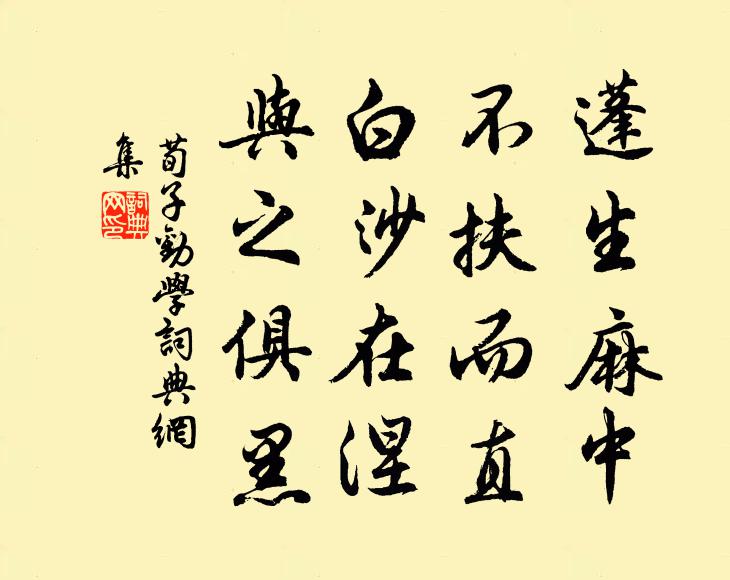 蓬生麻中
不扶而直
白沙在涅
與之俱黑
荀子勸學詞典網
集
詞典
网印